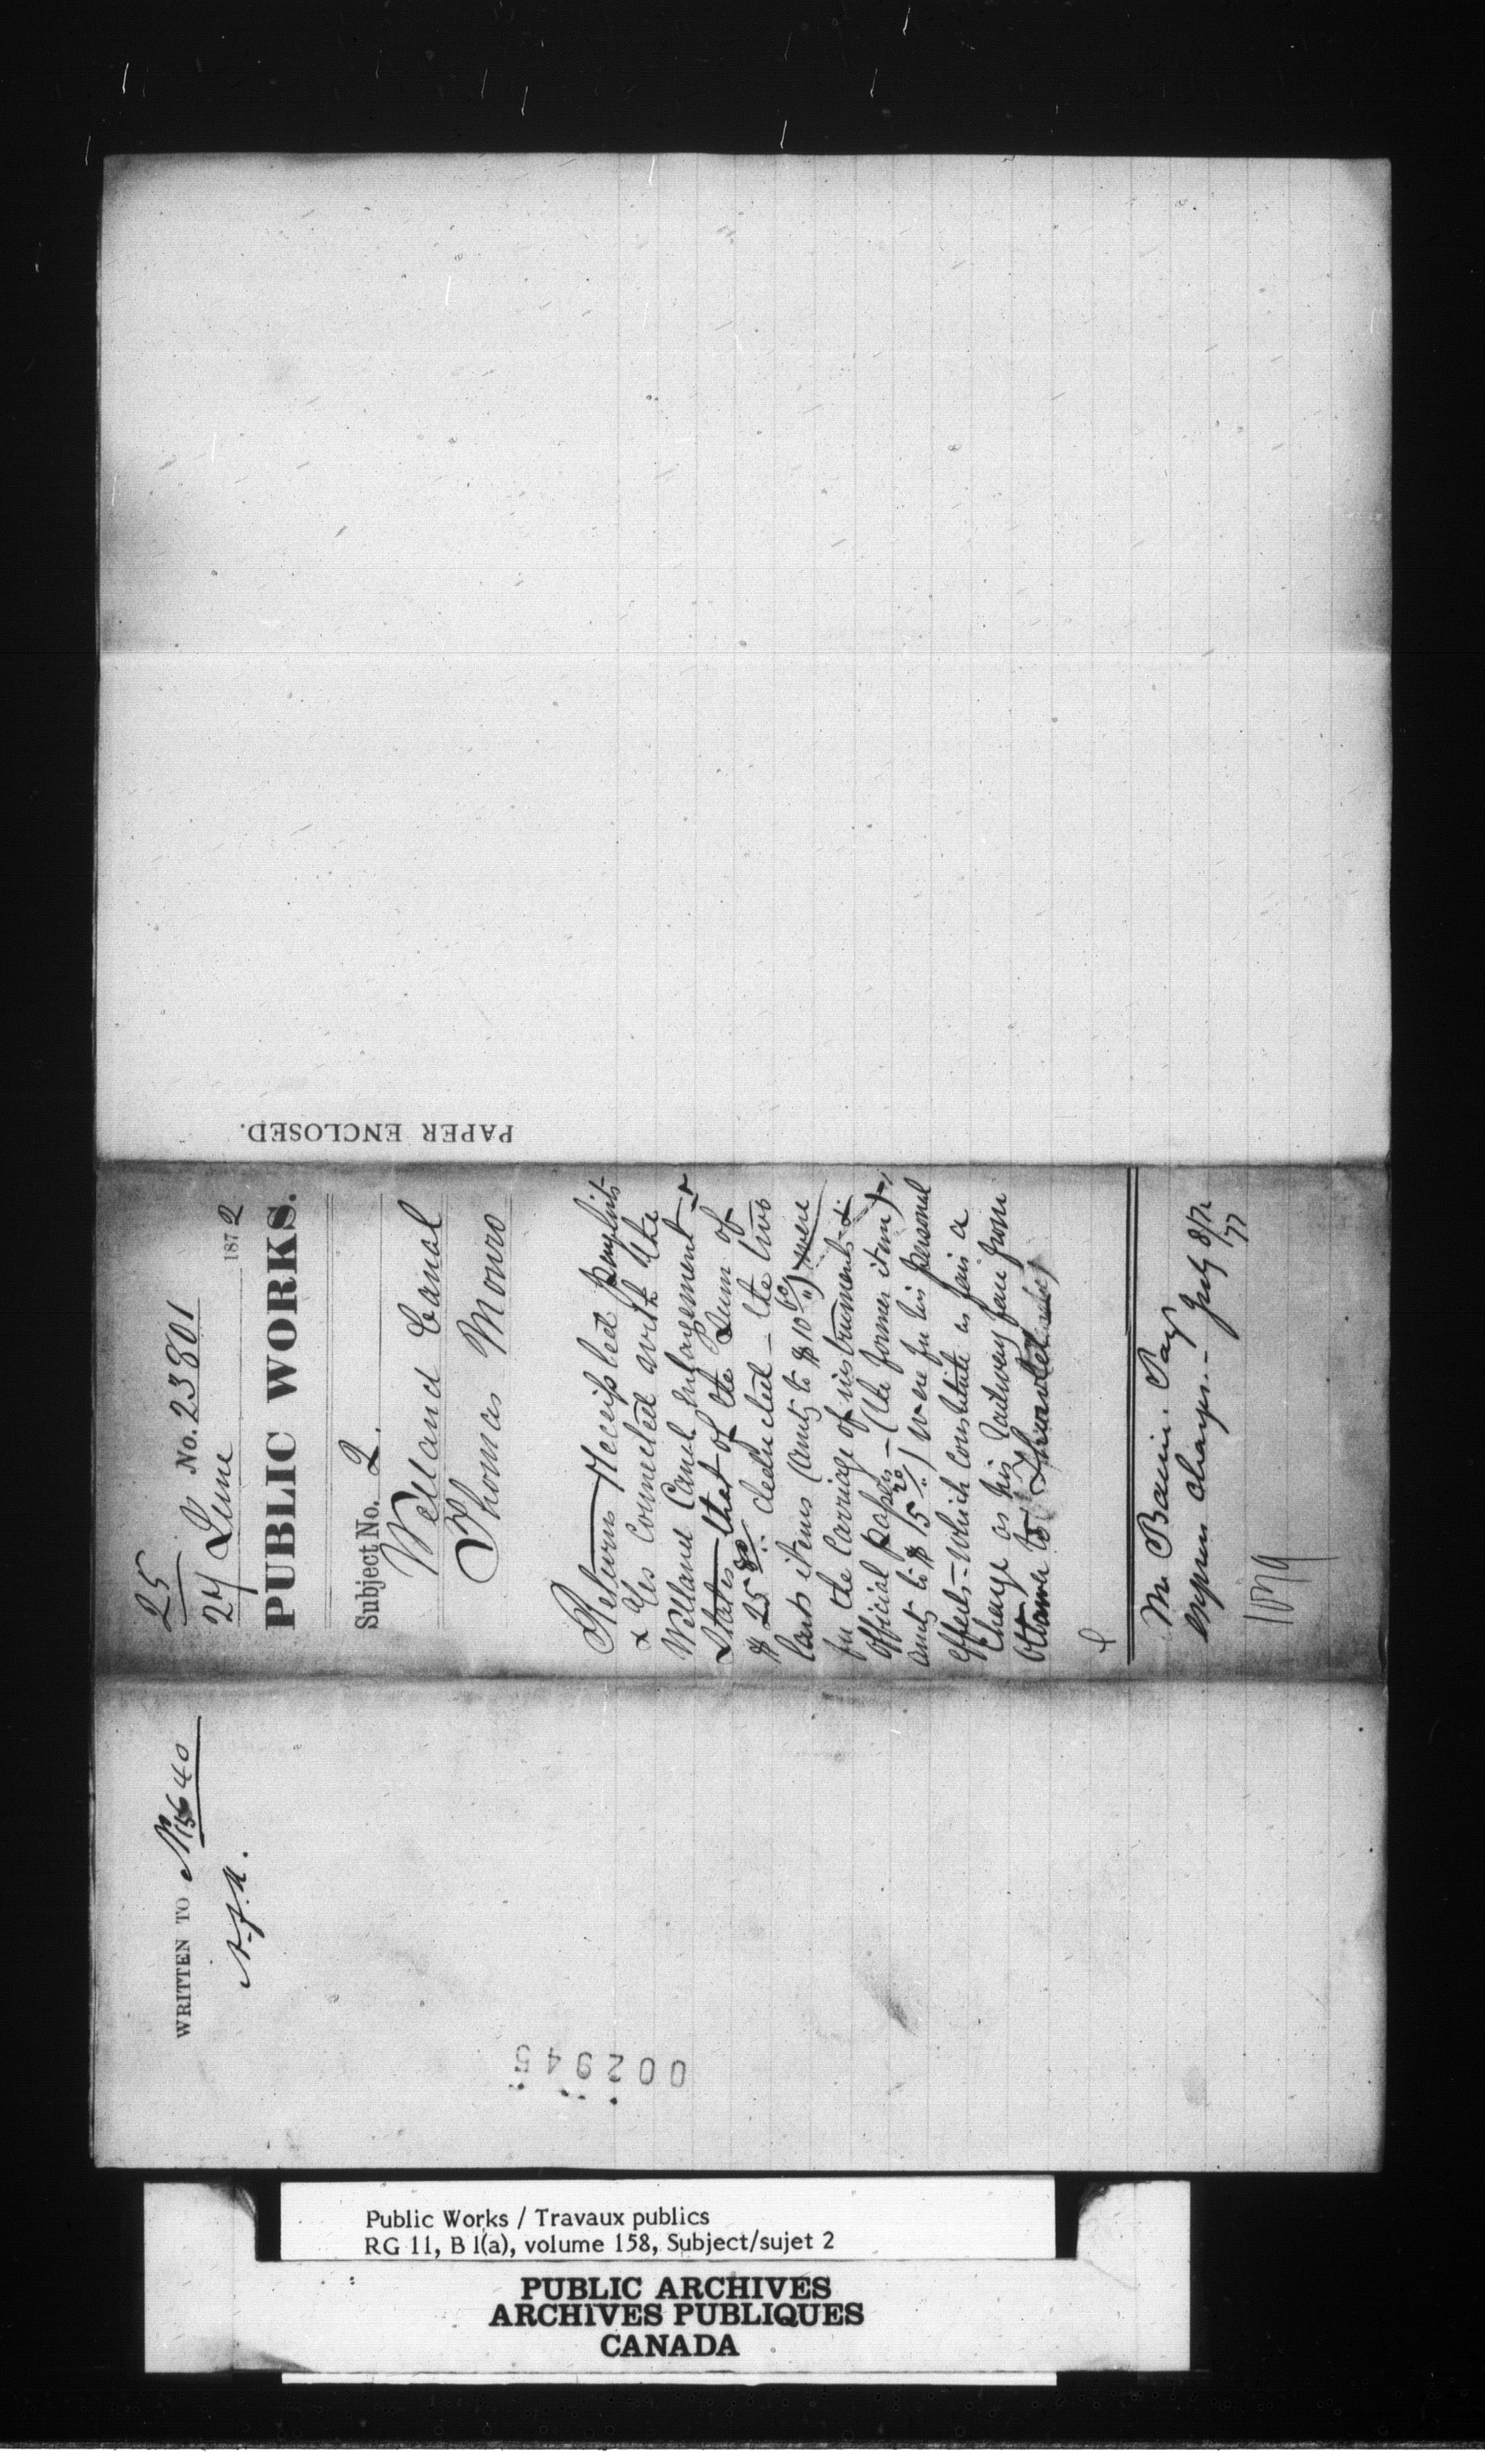 25
No. 23801
27 June 1872
PUBLIC WORKS.
Subject No. 2.
Welland Canal
Thomas Monro
Return Receipted paylists
& a/cs connected with the
Welland Canal Enlargement &
States that of the Sum of
$ 25 80 deducted – the two
last items (amtg to $ 10 60) were
for the Carriage of instruments &
official papers – (the former item)
amtg to $ 15 20) were for his personal
effects – which constitute as fair a
Charge as his Railway fare from
Ottawa to
Mr Baine. Pay
express charges – July 8/72
PAPER ENCLOSED.
WRITTEN TO No 15640
002945
Public Works / Travaux publics
RG 11, B 1(a), volume 158, Subject/sujet 2
PUBLIC ARCHIVES
ARCHIVES PUBLIQUES
CANADA